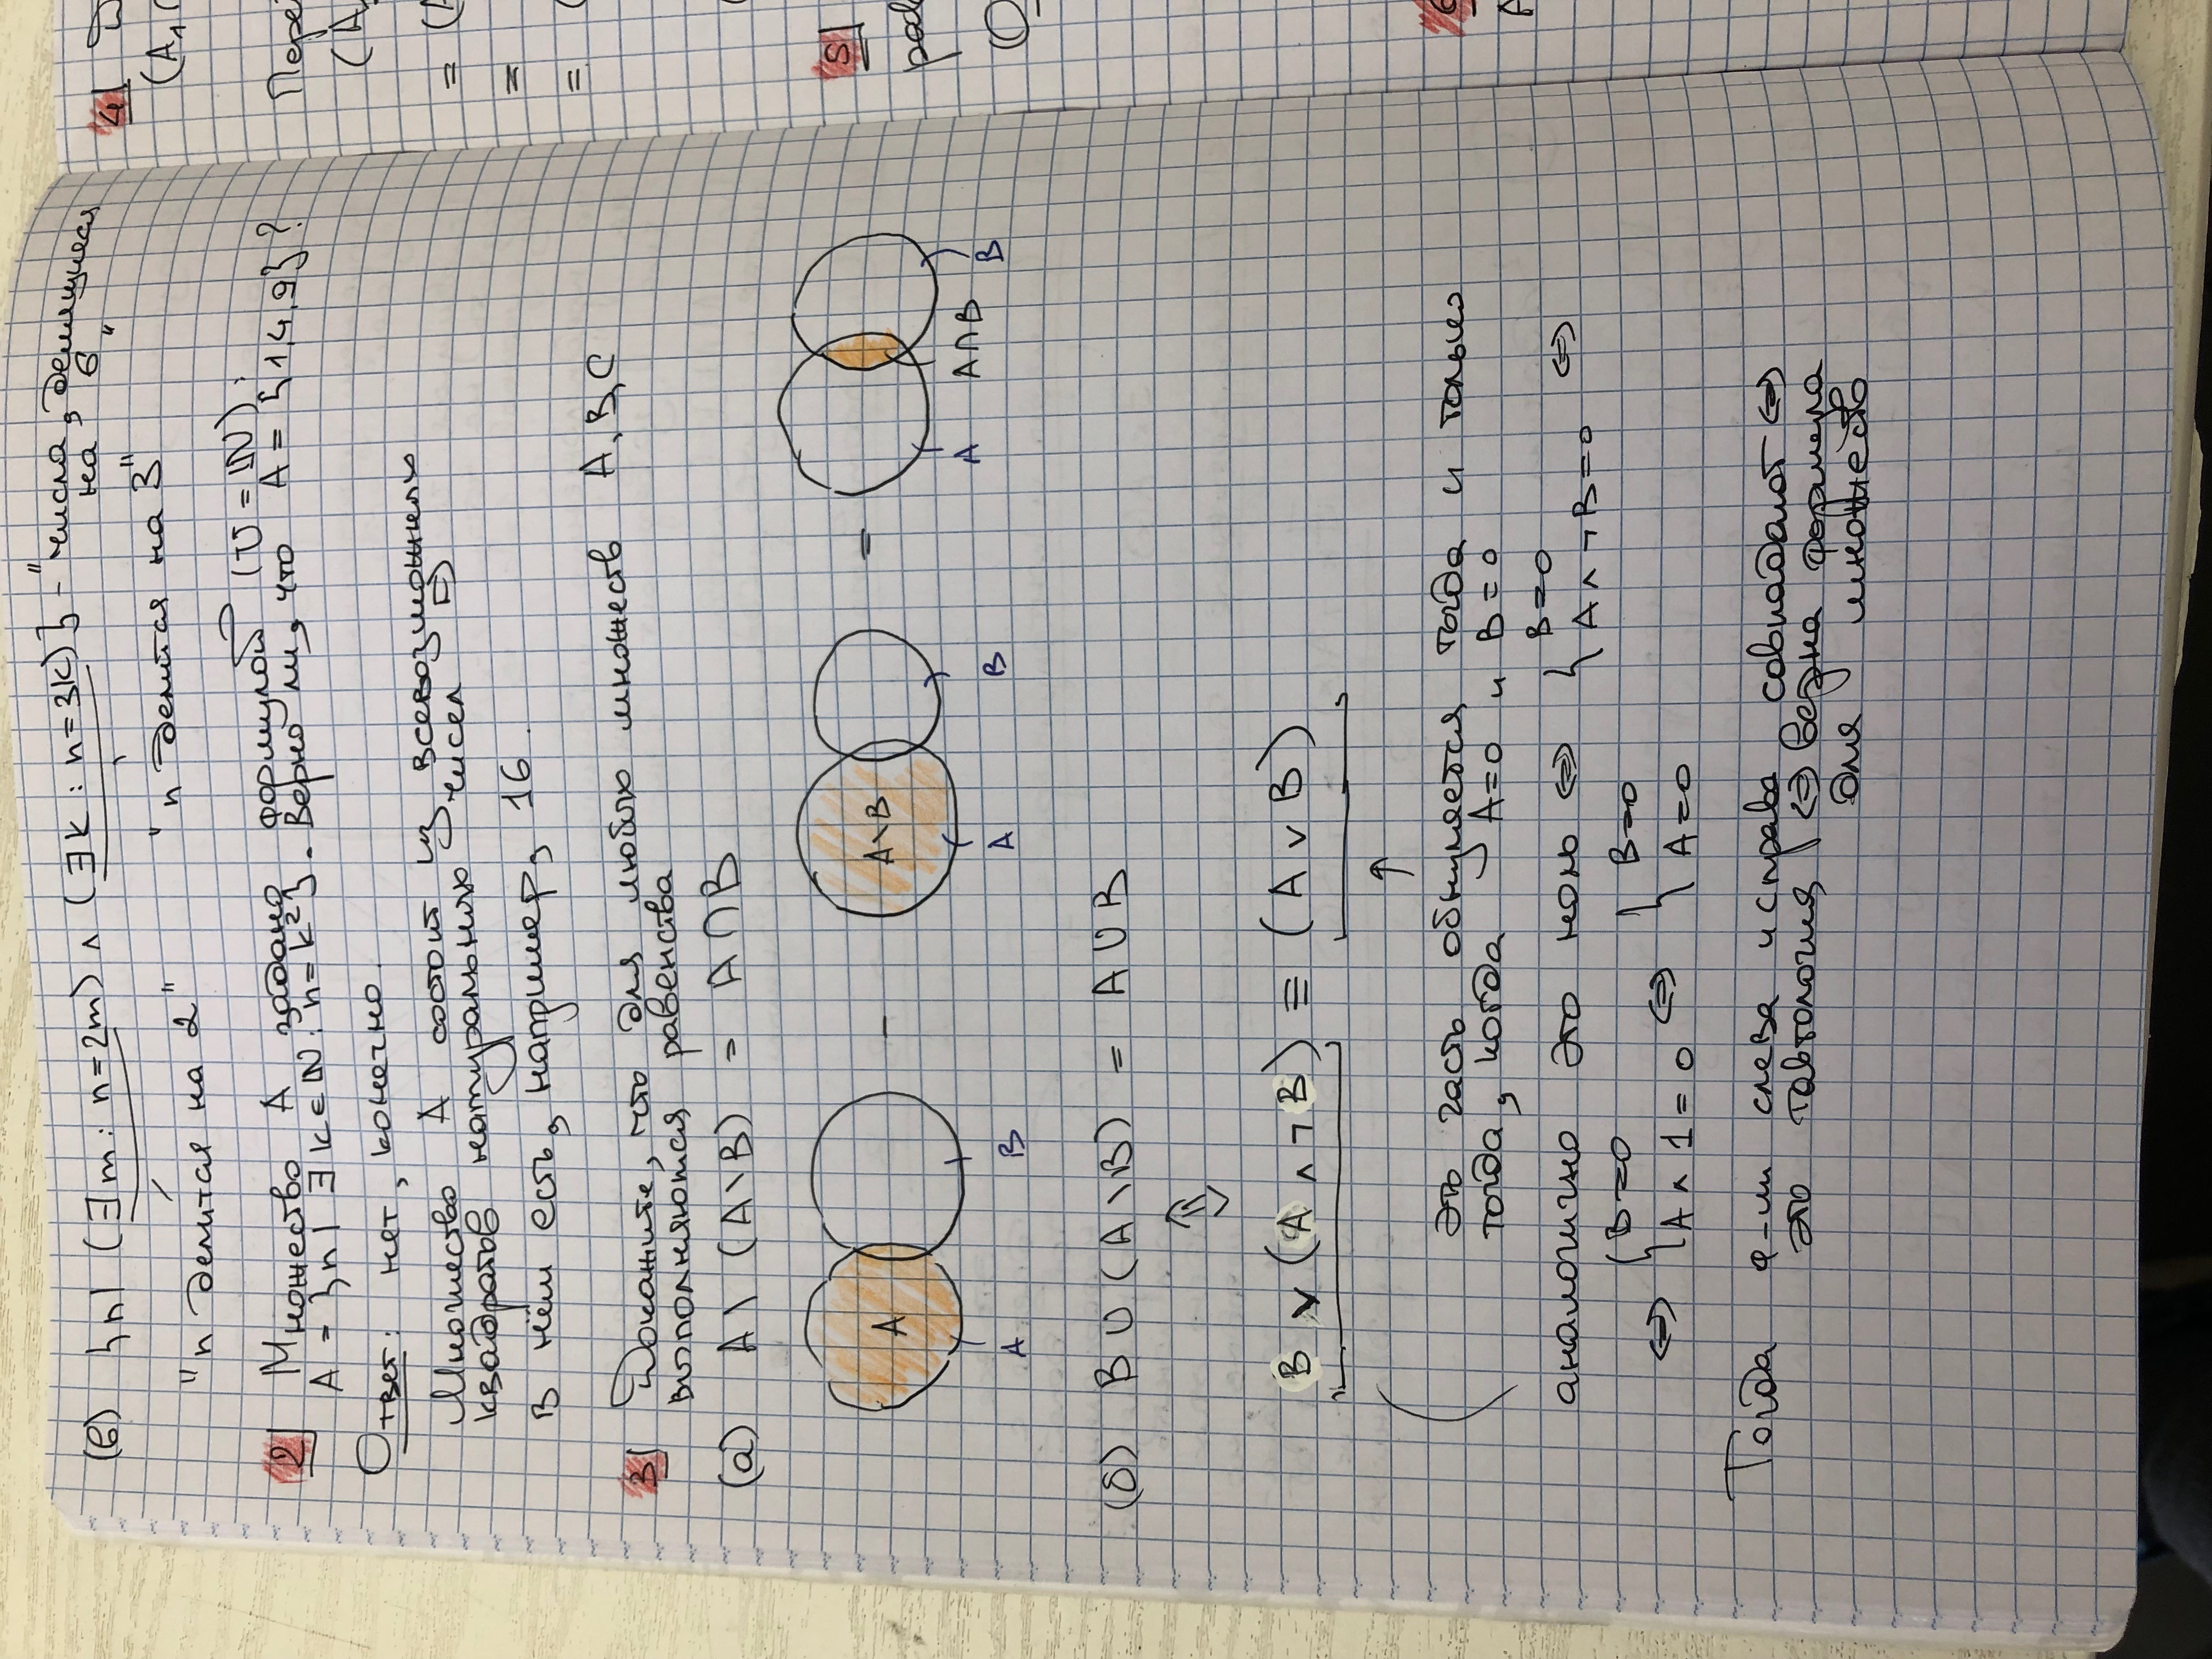 (в) {n| (∃m: n=2m) ∧ (∃k: n=3k)} - "числа, делящиеся
на 6"
"n делится на 2" "n делится на 3"
2| Множество A задано формулой (U = ℕ):
A = {n | ∃k∈ℕ: n=k²}. Верно ли, что A = {1,4,9}?
Ответ: нет, конечно.
Множество A состоит из всевозможных
квадратов натуральных чисел ⇒
в нём есть, например, 16.
3| Докажите, что для любых множеств A, B, C
выполняются равенства
(а) A \ (A\B) = A∩B
A - A\B =
A B A B A A∩B B
(б) B ∪ (A\B) = A∪B
⇕
B ∨ (A ∧ ¬B) ≡ (A ∨ B)
↑
это часть обнуляется тогда и только
тогда, когда A=0 и B=0
аналогично это ноль ⇔ { B=0
A ∧ ¬B=0 ⇔
⇔ { B=0
A ∧ 1=0 ⇔ { B=0
A=0
Тогда ф-ли слева и справа совпадают ⇔
это тавтология ⇔ верна формула
для множеств
4| Д
(A₁∩
Пере
(A
= (A
=
= (
(
5|
рав
(О
A